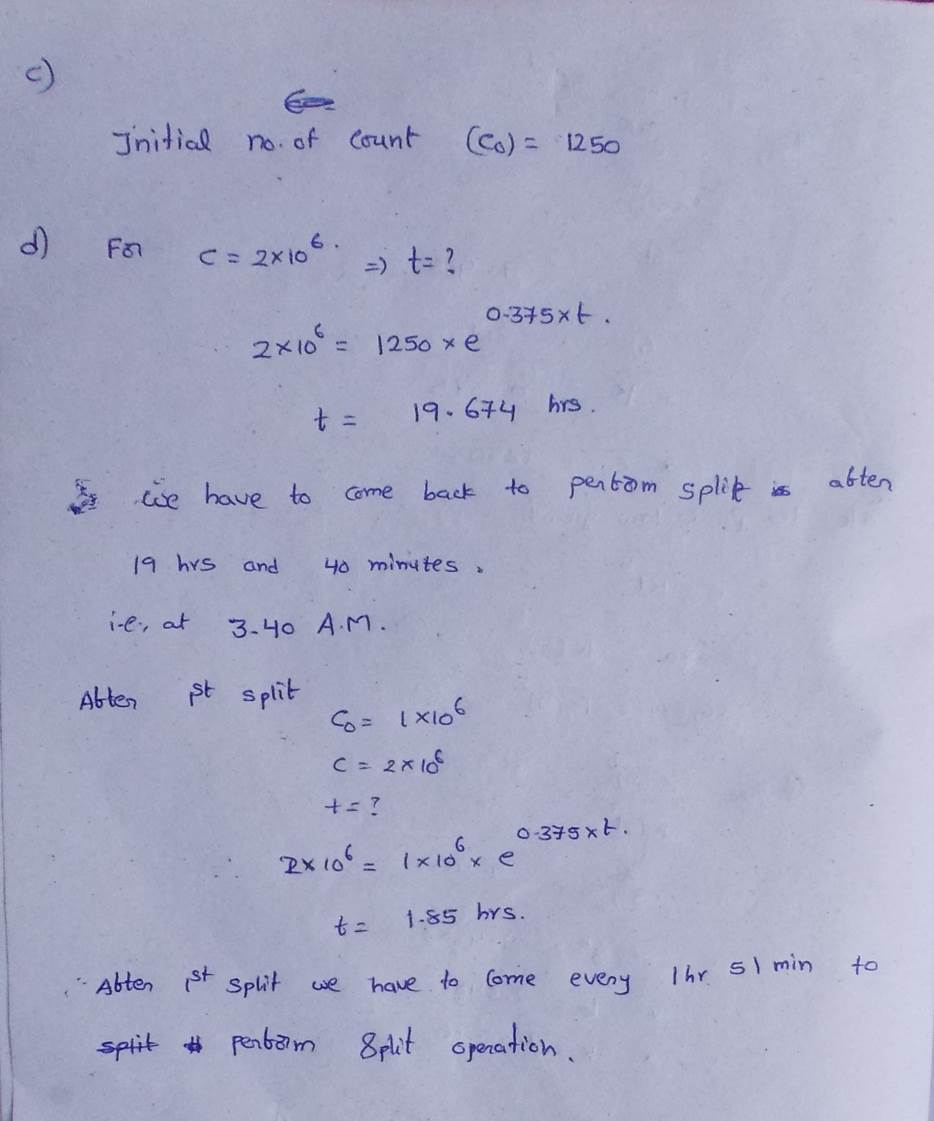 c)
Initial no. of count (C₀) = 1250
d) For C = 2×10⁶. ⇒ t= ?
2×10⁶ = 1250 × e^0.375×t.
t = 19.674 hrs.
we have to come back to perform split is after
19 hrs and 40 minutes.
i.e., at 3.40 A.M.
After 1st split
C₀ = 1×10⁶
C = 2×10⁶
t = ?
∴ 2×10⁶ = 1×10⁶ × e^0.375×t.
t = 1.85 hrs.
∴ After 1st split we have to come every 1hr 51 min to
split perform split operation.